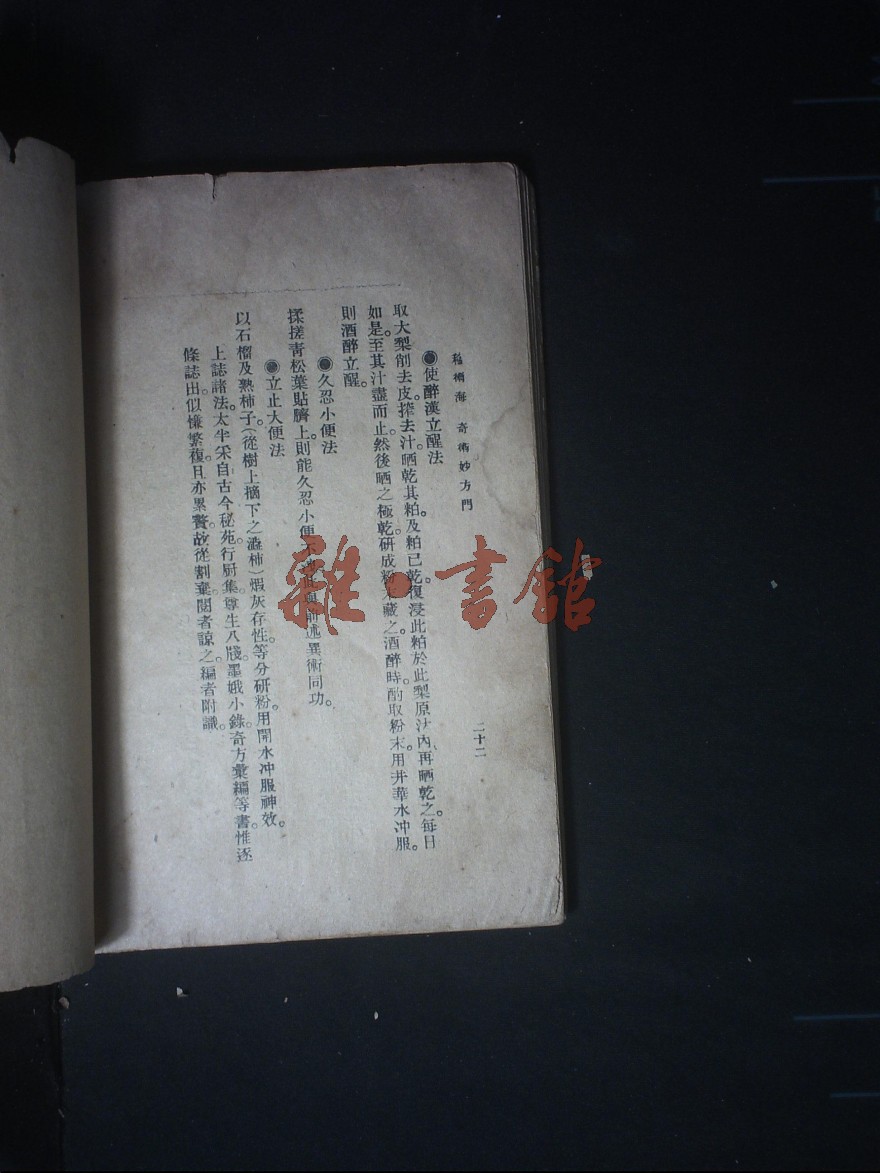 術海 奇術妙方門
二十二
●使醉漢立醒法
取大梨削去皮。搾去汁。晒乾其粕。及粕已乾。復浸此粕於此梨原汁內。再晒乾之。每日
如是。至其汁盡而止。然後晒之極乾。研成粉末藏之。酒醉時。酌取粉末。用井華水冲服。
則酒醉立醒。
●久忍小便法
揉搓靑松葉貼臍上。則能久忍小便不 前述異術同功。
●立止大便法
以石榴及熟柿子(從樹上摘下之澁柿)煆灰存性。等分研粉。用開水冲服神效。
上誌諸法。太半采自古今秘苑。行厨集。尊生八牋。墨娥小錄。奇方彙編等書。惟逐
條誌出。似慊繁複。且亦累贅。故從割棄。閱者諒之。編者附識。
雜·書館